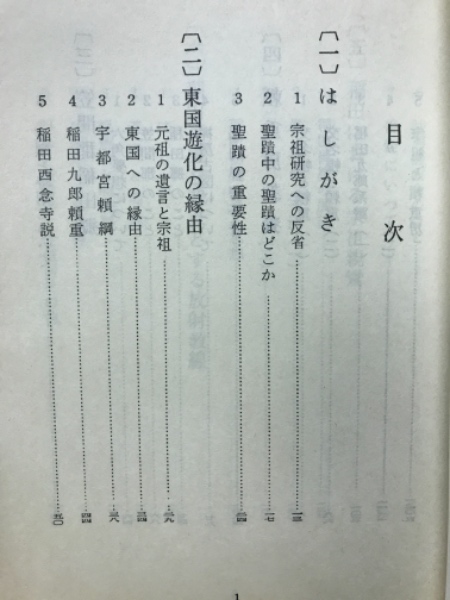 目次
〔一〕はしがき
1 宗祖研究への反省……一三
2 聖蹟中の聖蹟はどこか……一七
3 聖蹟の重要性……二四
〔二〕東国遊化の縁由
1 元祖の遺言と宗祖……二九
2 東国への縁由……三四
3 宇都宮頼綱……三八
4 稲田九郎頼重……四四
5 稲田西念寺説……五〇
1